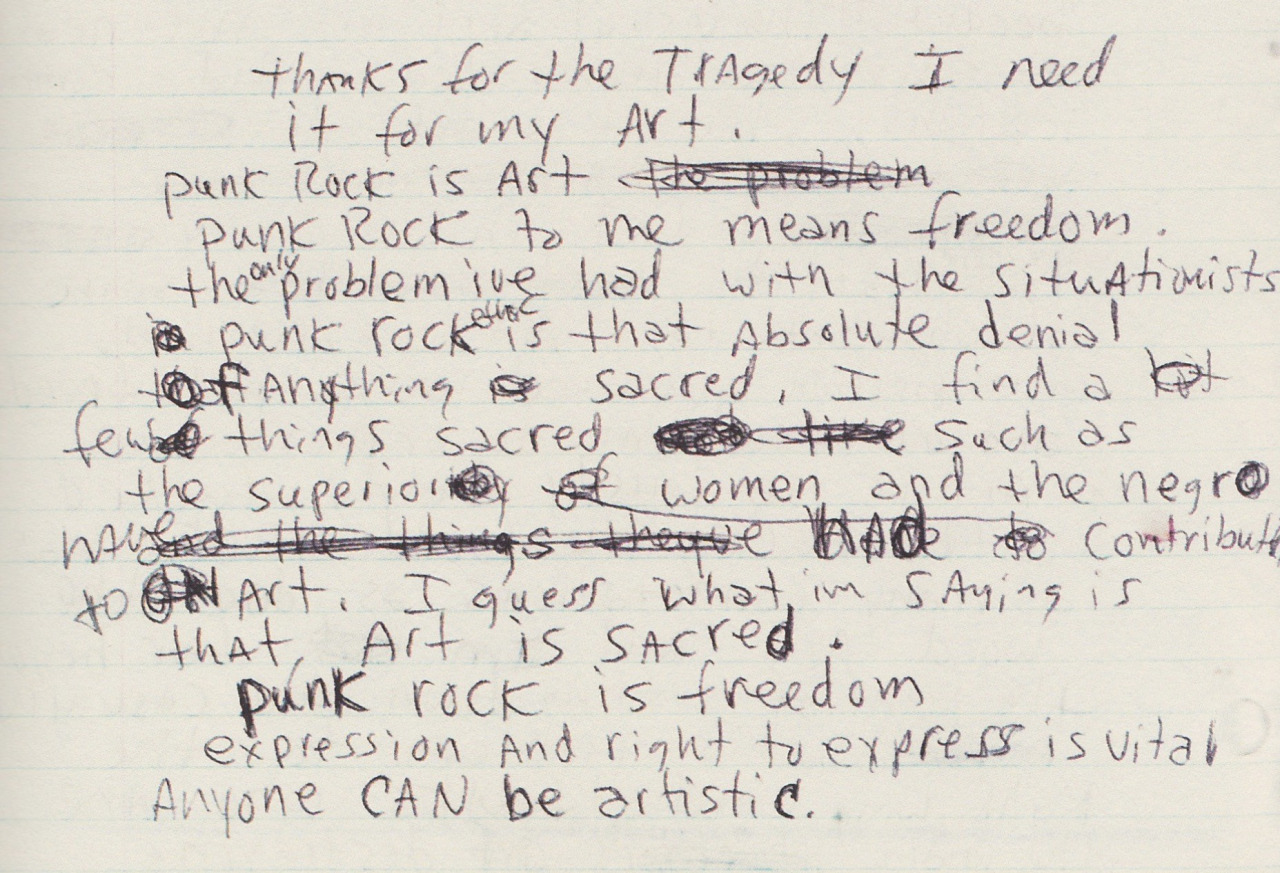 thanks for the Tragedy I need
it for my Art.
punk Rock is Art the problem
punk Rock to me means freedom.
the only problem ive had with the situationists
punk rock ethic is that Absolute denial
of Anything sacred, I find a
few things sacred such as
the superiority of women and the negro
have and the things theyve contribute
to Art. I guess what im SAying is
thAt, Art is SAcred.
punk rock is freedom
expression And right to express is vital
Anyone CAN be artistic.